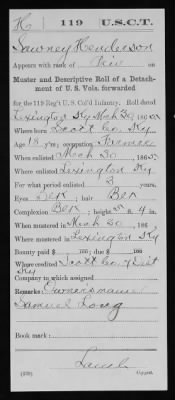 H | 119 | U.S.C.T.
Sawney Henderson
Appears with rank of Priv on
Muster and Descriptive Roll of a Detach-
ment of U. S. Vols. forwarded
for the 119 Reg't U. S. Col'd Infantry. Roll dated
Lexington Ky Mch 30, 1865.
Where born Scott Co. Ky
Age 18 y'rs; occupation Farmer
When enlisted Mch 30, 1865.
Where enlisted Lexington Ky
For what period enlisted 3 years.
Eyes Blk; hair Blk
Complexion Blk; height 5 ft. 4 in.
When mustered in Mch 30, 186
Where mustered in Lexington Ky
Bounty paid $ ; due $
Where credited Scott Co. 7 Dist
Ky
Company to which assigned
Remarks: Owner's name
Samuel Long
Book mark:
(339) Copyist.